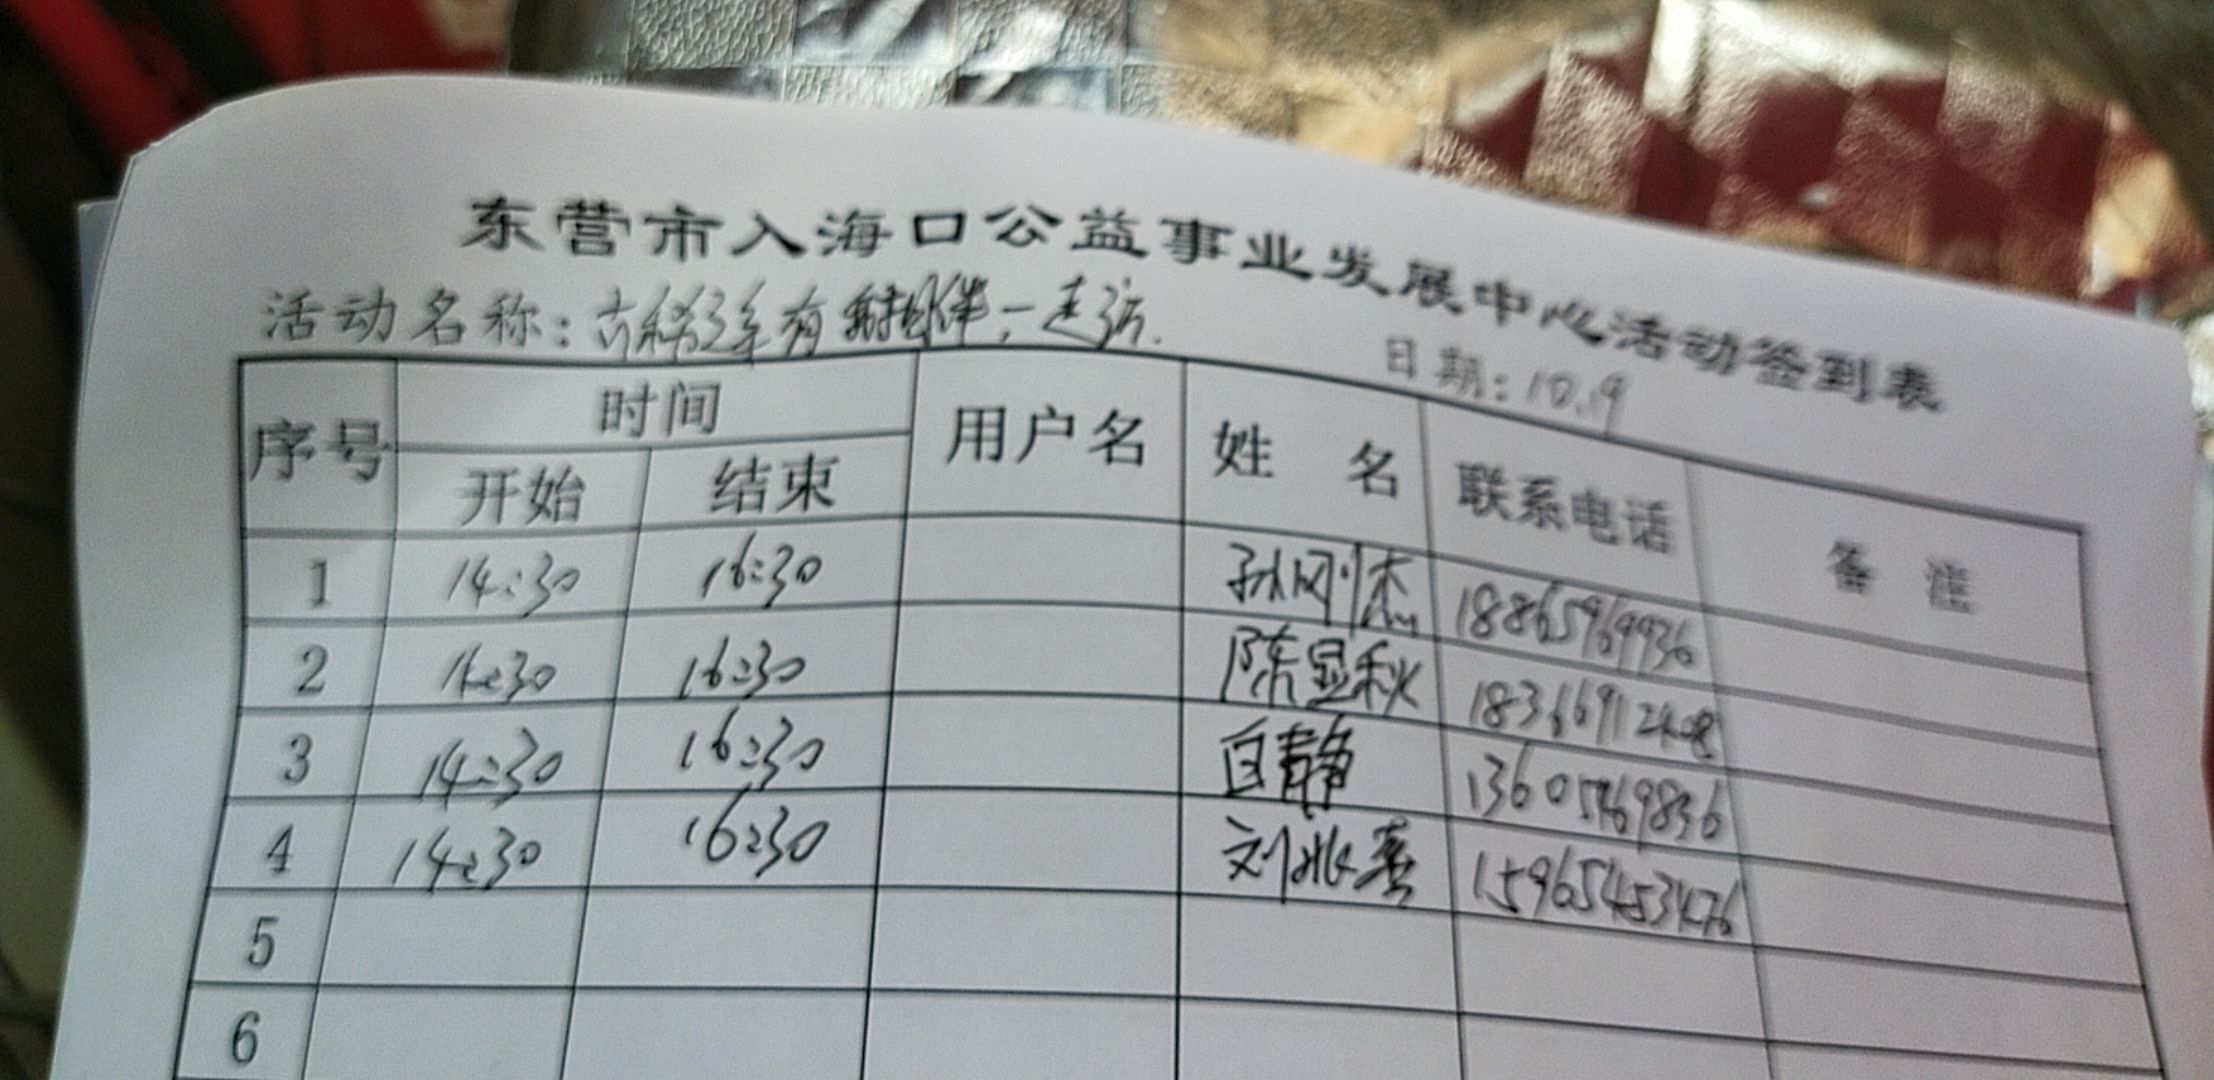 东营市入海口公益事业发展中心活动签到表
活动名称：古稀之年有 伴，走访.
日期：10.19
序号 时间 用户名 姓 名 联系电话 备 注
开始 结束
1 14:30 16:30 孙刚杰 18865969936
2 14:30 16:30 陈显秋 18366912408
3 14:30 16:30 白静 13605469836
4 14:30 16:30 刘 15965453476
5
6